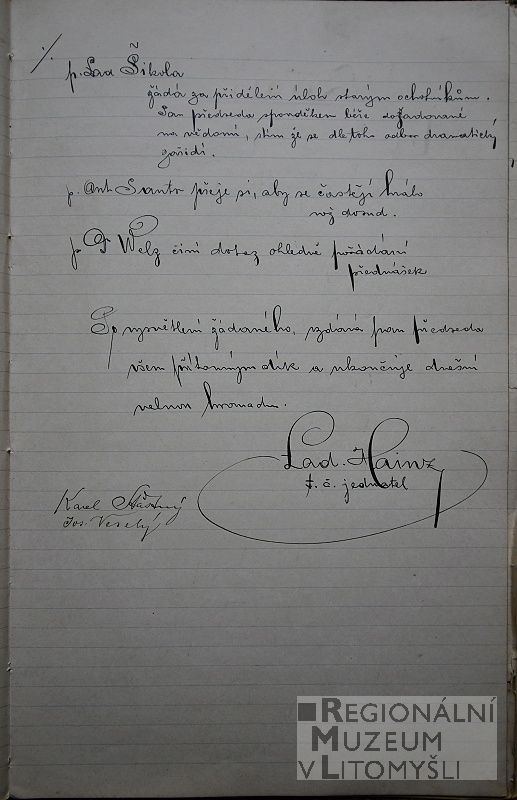 ./.
p. Lad Šikola
žádá za přidělení úloh starým ochotníkům.
Pan předseda sponděkem béře dožadované
na vědomí, s tím že se dle toho odbor dramatický
zařídí.
p. Ant. Santr přeje si, aby se častěji hrálo
než dosud.
p. Welz činí dotaz ohledně pořádání
přednášek
Po vysvětlení žádaného, vzdává pan předseda
všem přítomným dík a ukončuje dnešní
valnou hromadu.
Lad. Hainz
t. č. jednatel
Karel Šťastný
Jos. Veselý
REGIONÁLNÍ
MUZEUM
V LITOMYŠLI